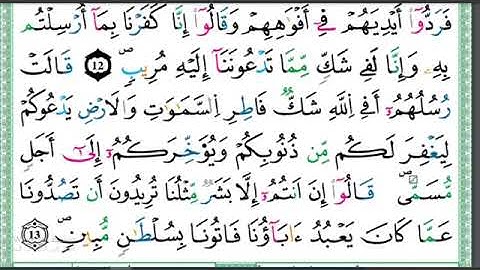 فَرَدُّوٓاْ أَيْدِيَهُمْ فِےٓ أَفْوَٰهِهِمْ وَقَالُوٓاْ إِنَّا كَفَرْنَا بِمَآ أُرْسِلْتُم
بِهِۦ وَإِنَّا لَفِے شَكّٖ مِّمَّا تَدْعُونَنَآ إِلَيْهِ مُرِيبٖ 12 قَالَتْ
رُسُلُهُمُۥٓ أَفِے اِ۬للَّهِ شَكّٞ فَاطِرِ اِ۬لسَّمَٰوَٰتِ وَالَارْضِ يَدْعُوكُمْ
لِيَغْفِرَ لَكُم مِّن ذُنُوبِكُمْ وَيُوَ۬خِّرَكُمُۥٓ إِلَىٰٓ أَجَلٖ
مُّسَمّيٗ قَالُوٓاْ إِنَ اَنتُمُۥٓ إِلَّا بَشَرٞ مِّثْلُنَا تُرِيدُونَ أَن تَصُدُّونَا
عَمَّا كَانَ يَعْبُدُ ءَابَآؤُنَا فَاتُونَا بِسُلْطَٰنٖ مُّبِينٖ 13